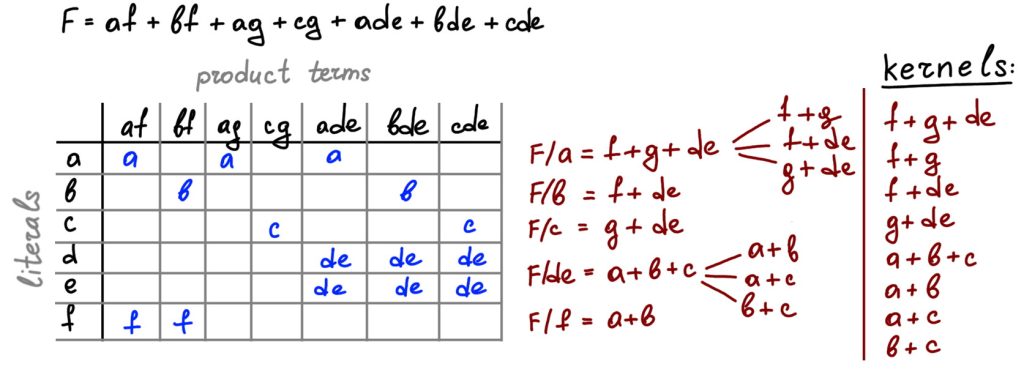 F = af + bf + ag + cg + ade + bde + cde
product terms
literals
af bf ag cg ade bde cde
a a a a
b b b
c c c
d de de de
e de de de
f f f
F/a = f+g+de
f+g
f+de
g+de
F/b = f+de
F/c = g+de
F/de = a+b+c
a+b
a+c
b+c
F/f = a+b
kernels:
f+g+de
f+g
f+de
g+de
a+b+c
a+b
a+c
b+c